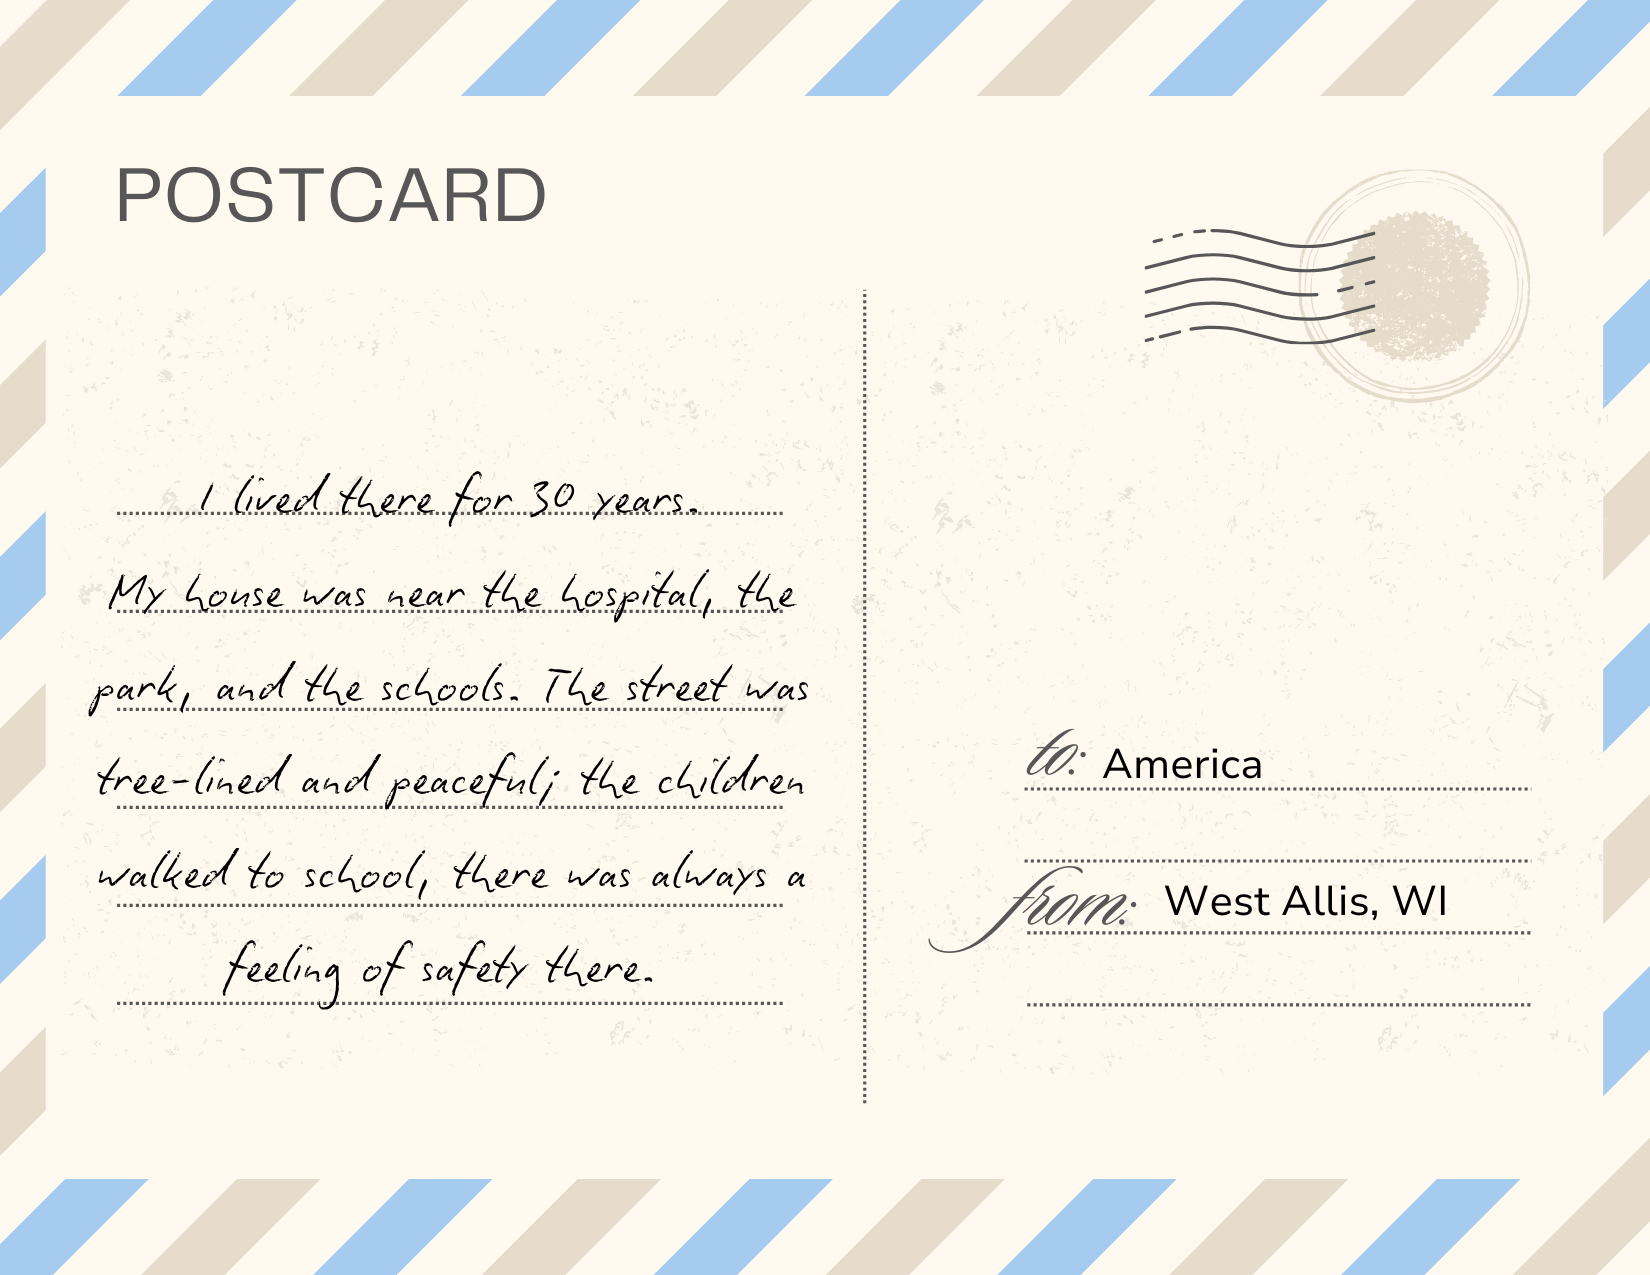 POSTCARD
I lived there for 30 years.
My house was near the hospital, the
park, and the schools. The street was
tree-lined and peaceful; the children
walked to school, there was always a
feeling of safety there.
to: America
from: West Allis, WI